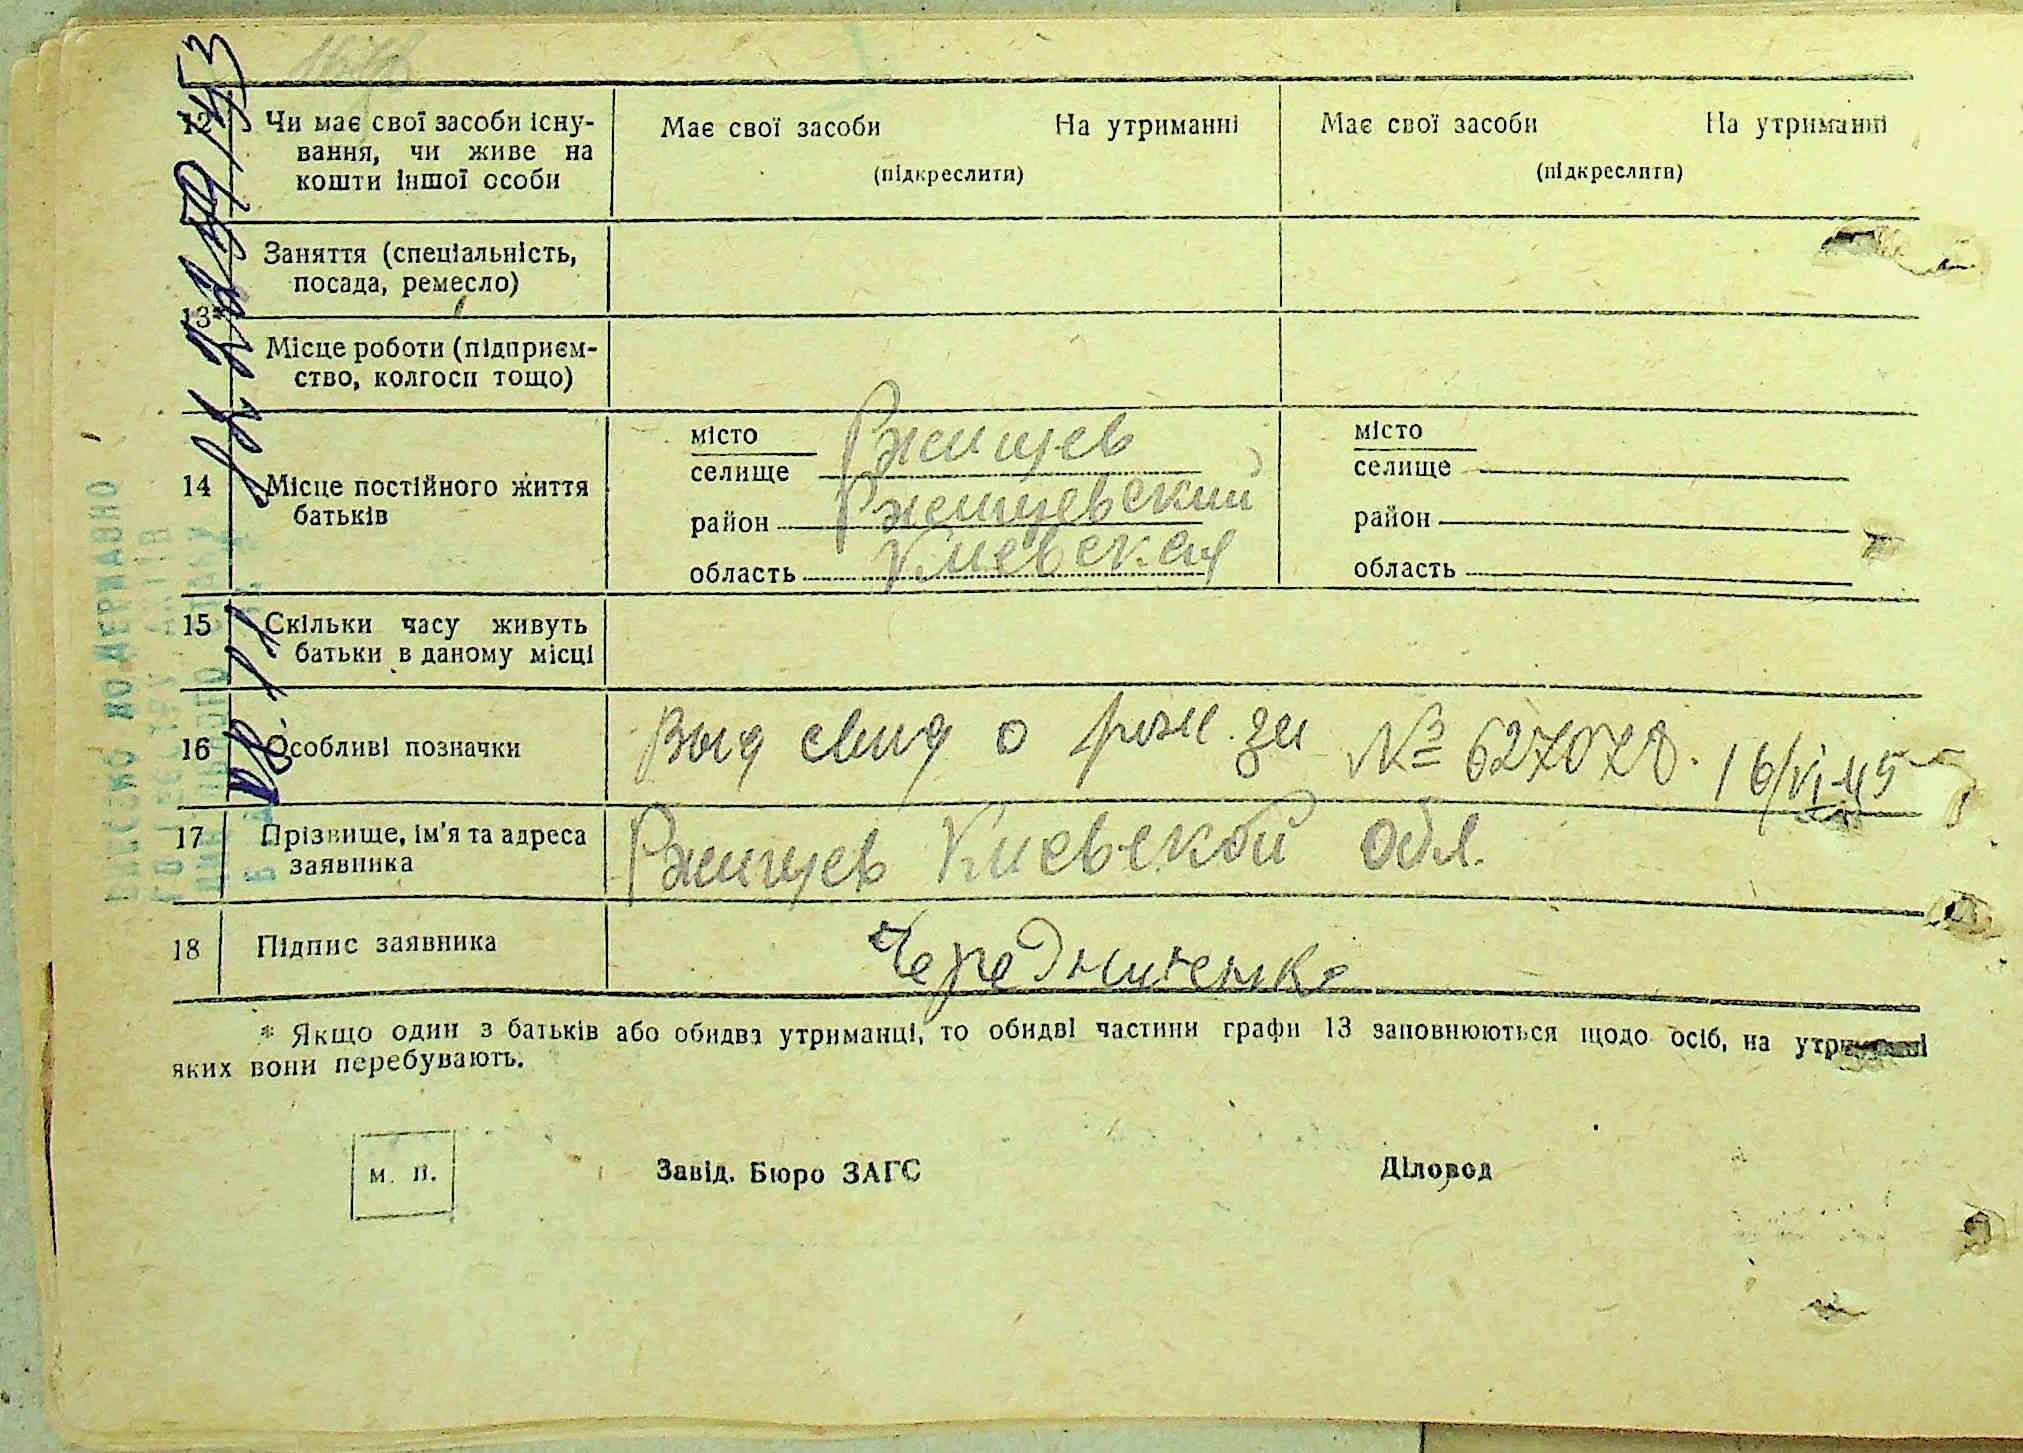 12 Чи має свої засоби існу- Має свої засоби На утриманні Має свої засоби На утриманні
вання, чи живе на (підкреслити) (підкреслити)
кошти іншої особи
Заняття (спеціальність,
посада, ремесло)
13*
Місце роботи (підприєм-
ство, колгосп тощо)
місто Ржищев місто
селище селище
14 Місце постійного життя
батьків
район Ржищевский район
область Киевская область
15 Скільки часу живуть
батьки в даному місці
16 Особливі позначки Выд свид о рож. за № 627078. 16/VI-45
17 Прізвище, ім'я та адреса Ржищев Киевской обл.
заявника
18 Підпис заявника Чередниченко
* Якщо один з батьків або обидва утриманці, то обидві частини графи 13 заповнюються щодо осіб, на утриманні
яких вони перебувають.
м. п. Завід. Бюро ЗАГС Діловод